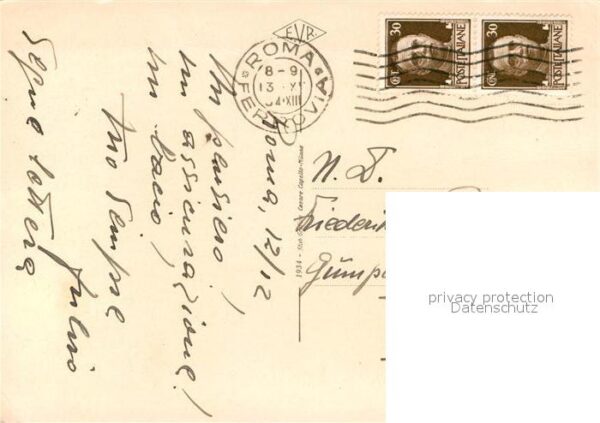 Roma, 12/12
Un pensiero,
un'assicurazione!
un bacio,
tuo sempre
Fulvio
Segue lettera
EVR
ROMA
FERROVIA
8-9
13 XII
34-XIII
CENT. 30
POSTE ITALIANE
CENT. 30
POSTE ITALIANE
1934 - Cesare Capello - Milano
N. D.
Friederik
Gümpe
privacy protection
Datenschutz